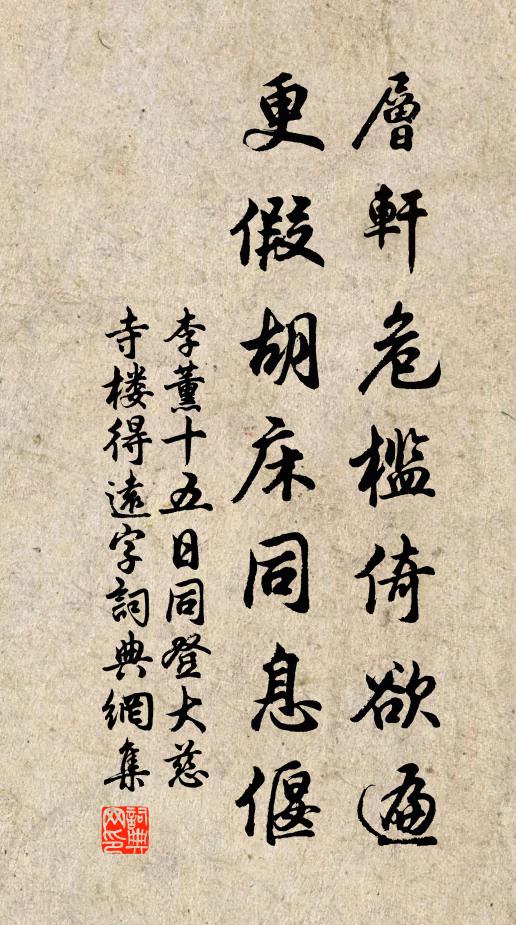 層軒危檻倚欲遍
更假胡床同息偃
李薰十五日同登大慈
寺楼得遠字詞典網集
詞典
网印